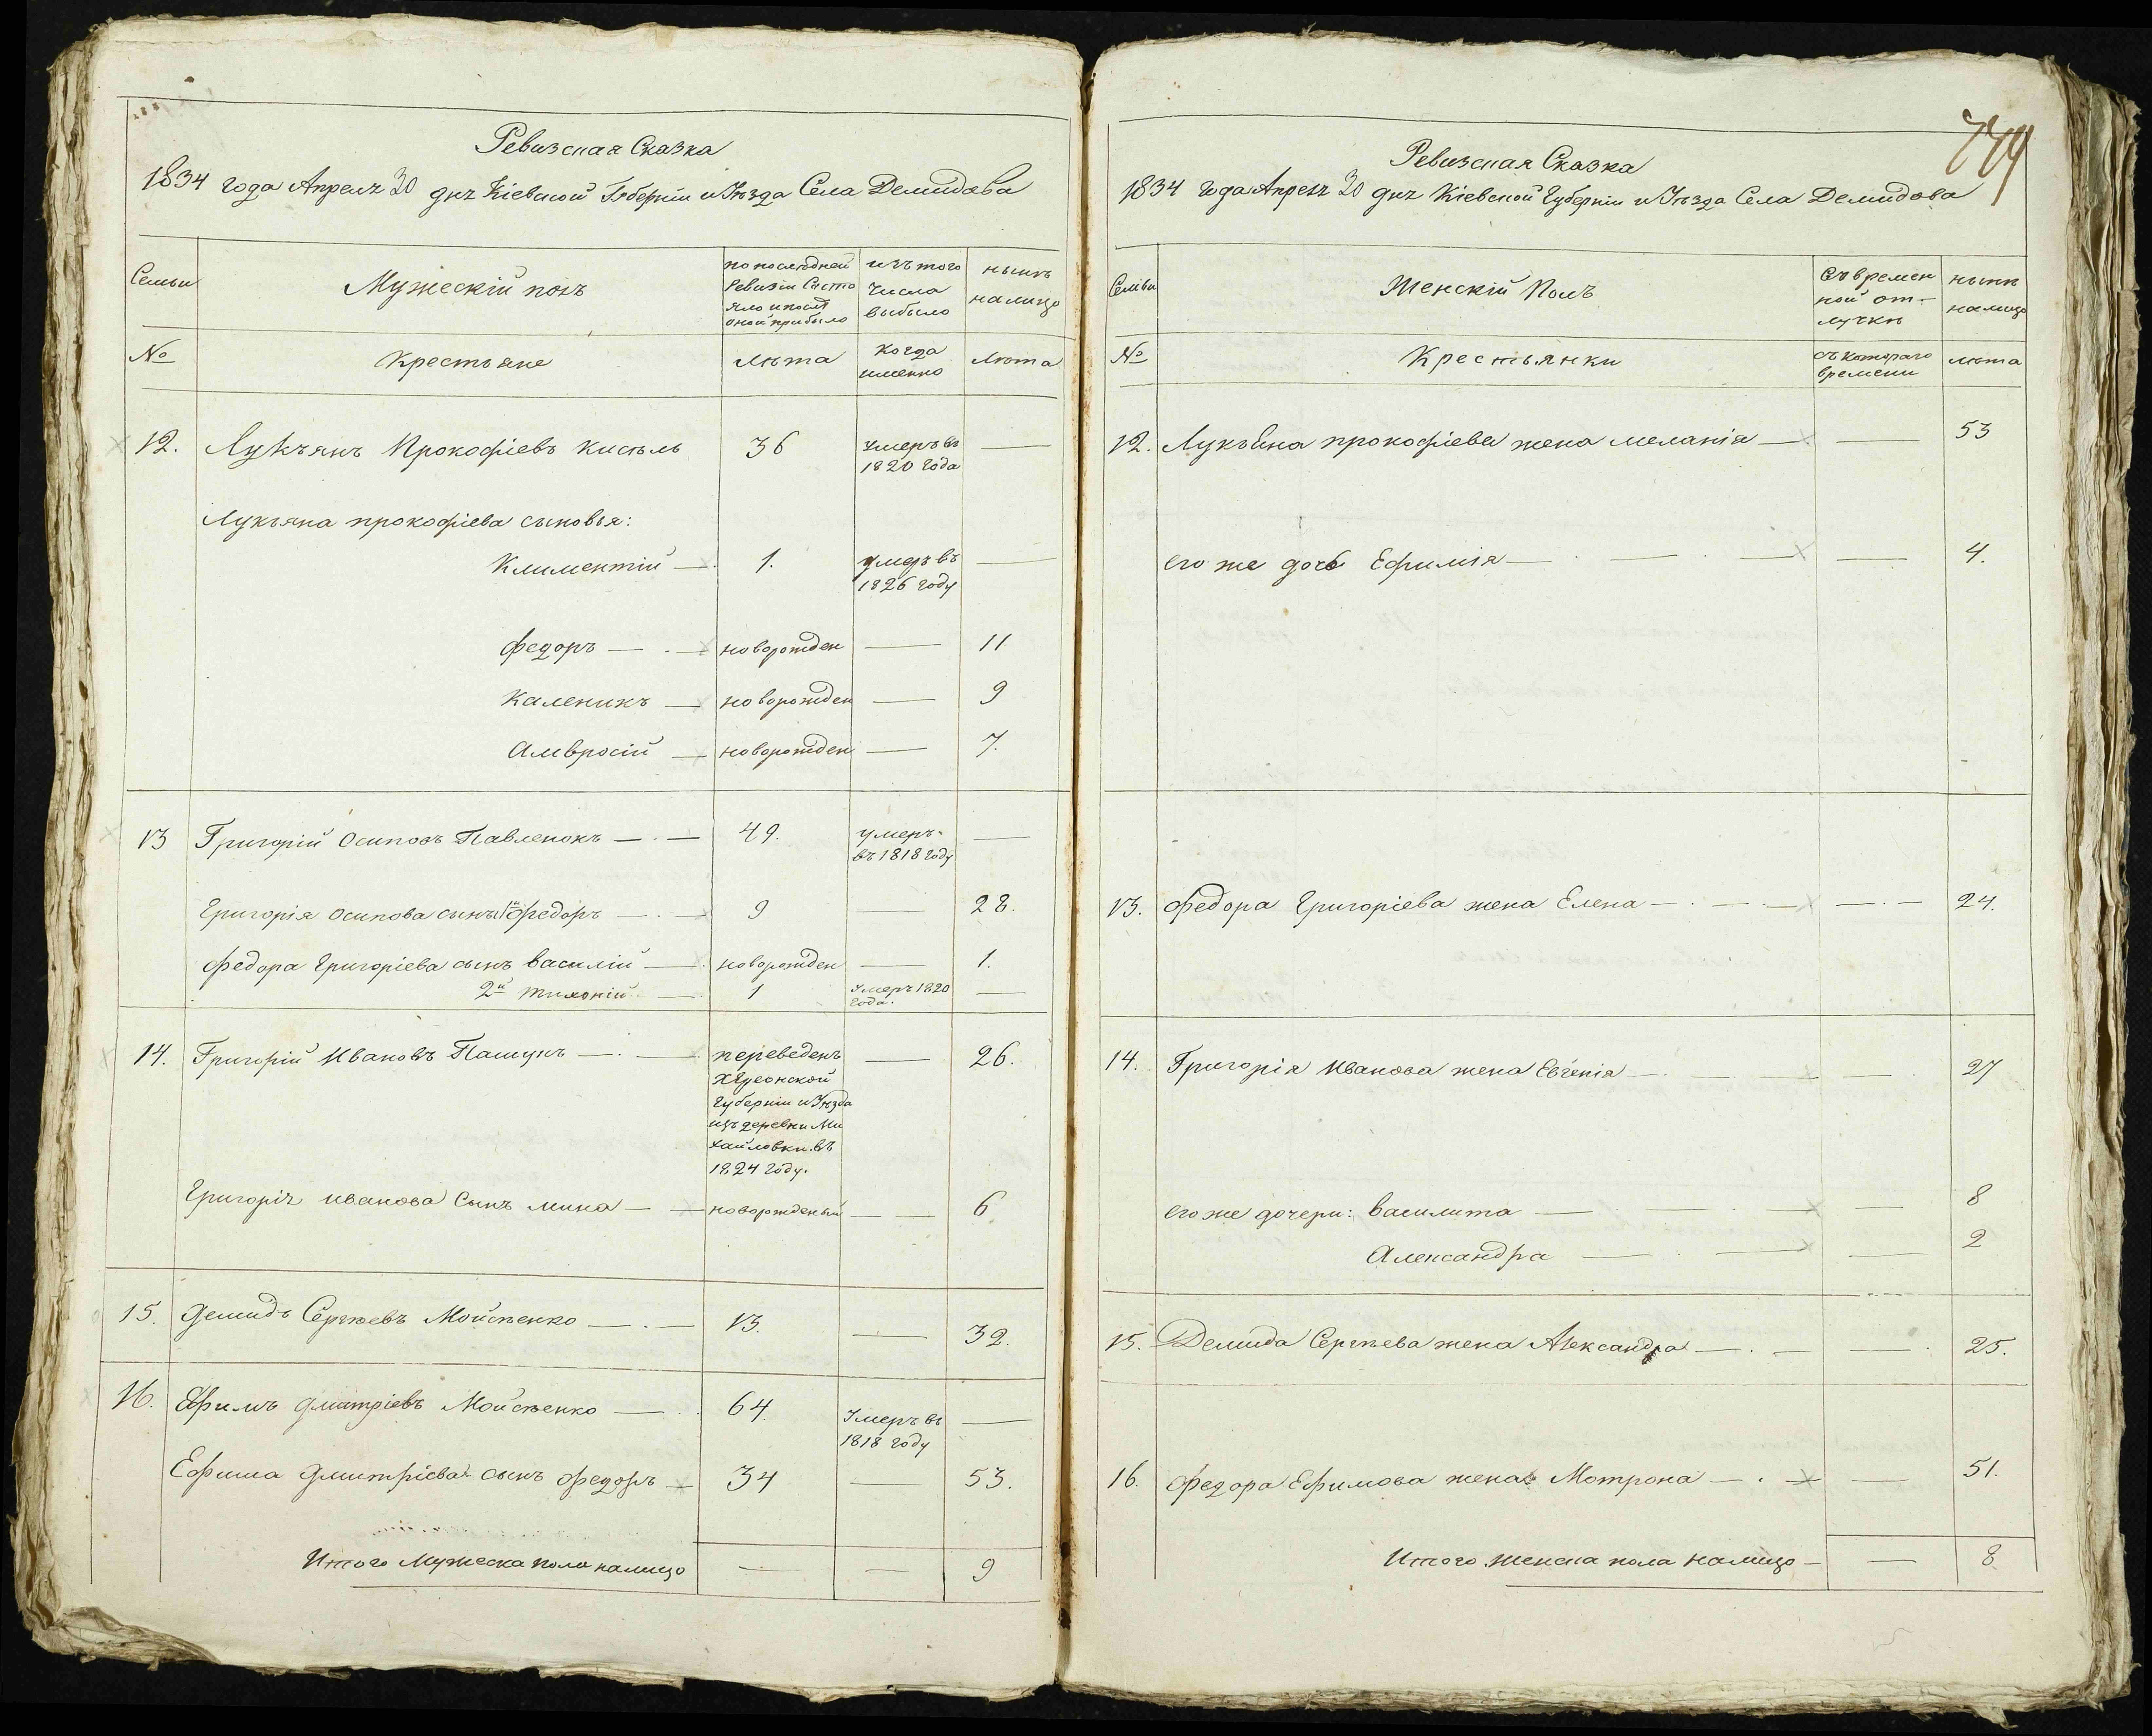 Ревизская Сказка
1834 года Апреля 30 дня Кіевской Губерніи и Уѣзда Села Демидова
Семьи
Мужескій полъ
по последней ревизіи состояло и после оной прибыло
изъ того числа выбыло
нынѣ налицо
№
Крестьяне
Лѣта
Когда именно
Лѣта
12. Лукъянъ Прокофіевъ Кисѣль 36 Умеръ въ 1820 года —
Лукъяна прокофіева сыновья:
Климентій — 1. умеръ въ 1826 году —
федоръ — новорожден — 11
Каленикъ — новорожден — 9
Амвросій — новорожден — 7.
13 Григорій Осиповъ Павленокъ — 49. умеръ въ 1818 году —
Григорія Осипова сынъ 1й Федоръ — 9 — 28.
Федора Григоріева сынъ василій — новорожден — 1.
2й тихоній — 1 Умеръ 1820 года. —
14. Григорій Ивановъ Пашунъ — переведенъ Херсонской Губерніи и Уѣзда изъ деревни Михайловки въ 1824 году. — 26.
Григорія иванова Сынъ мина — новорожденый — 6
15. Демидъ Сергѣевъ Мойсѣенко — 13. — 32.
16. Ефимъ Дмитріевъ Мойсѣенко — 64. Умеръ въ 1818 году —
Ефима Дмитріева сынъ Федоръ — 34 — 53.
Итого Мужеска пола налицо — — 9
779
Ревизская Сказка
1834 года Апреля 30 дня Кіевской Губерніи и Уѣзда Села Демидова
Семьи
Женскій Полъ
Съ временной отлучкѣ
нынѣ налицо
№
Крестьянки
съ котораго времени
лѣта
12. Лукъяна прокофіева жена меланія — — 53
его же дочь Ефимія — — 4.
13. Федора Григоріева жена Елена — — 24.
14. Григорія Иванова жена Евгенія — — 27
его же дочери: василита — — 8
Александра — — 2
15. Демида Сергѣева жена Александра — — 25.
16. Федора Ефимова жена Мотрона — — 51.
Итого женска пола налицо — — 8